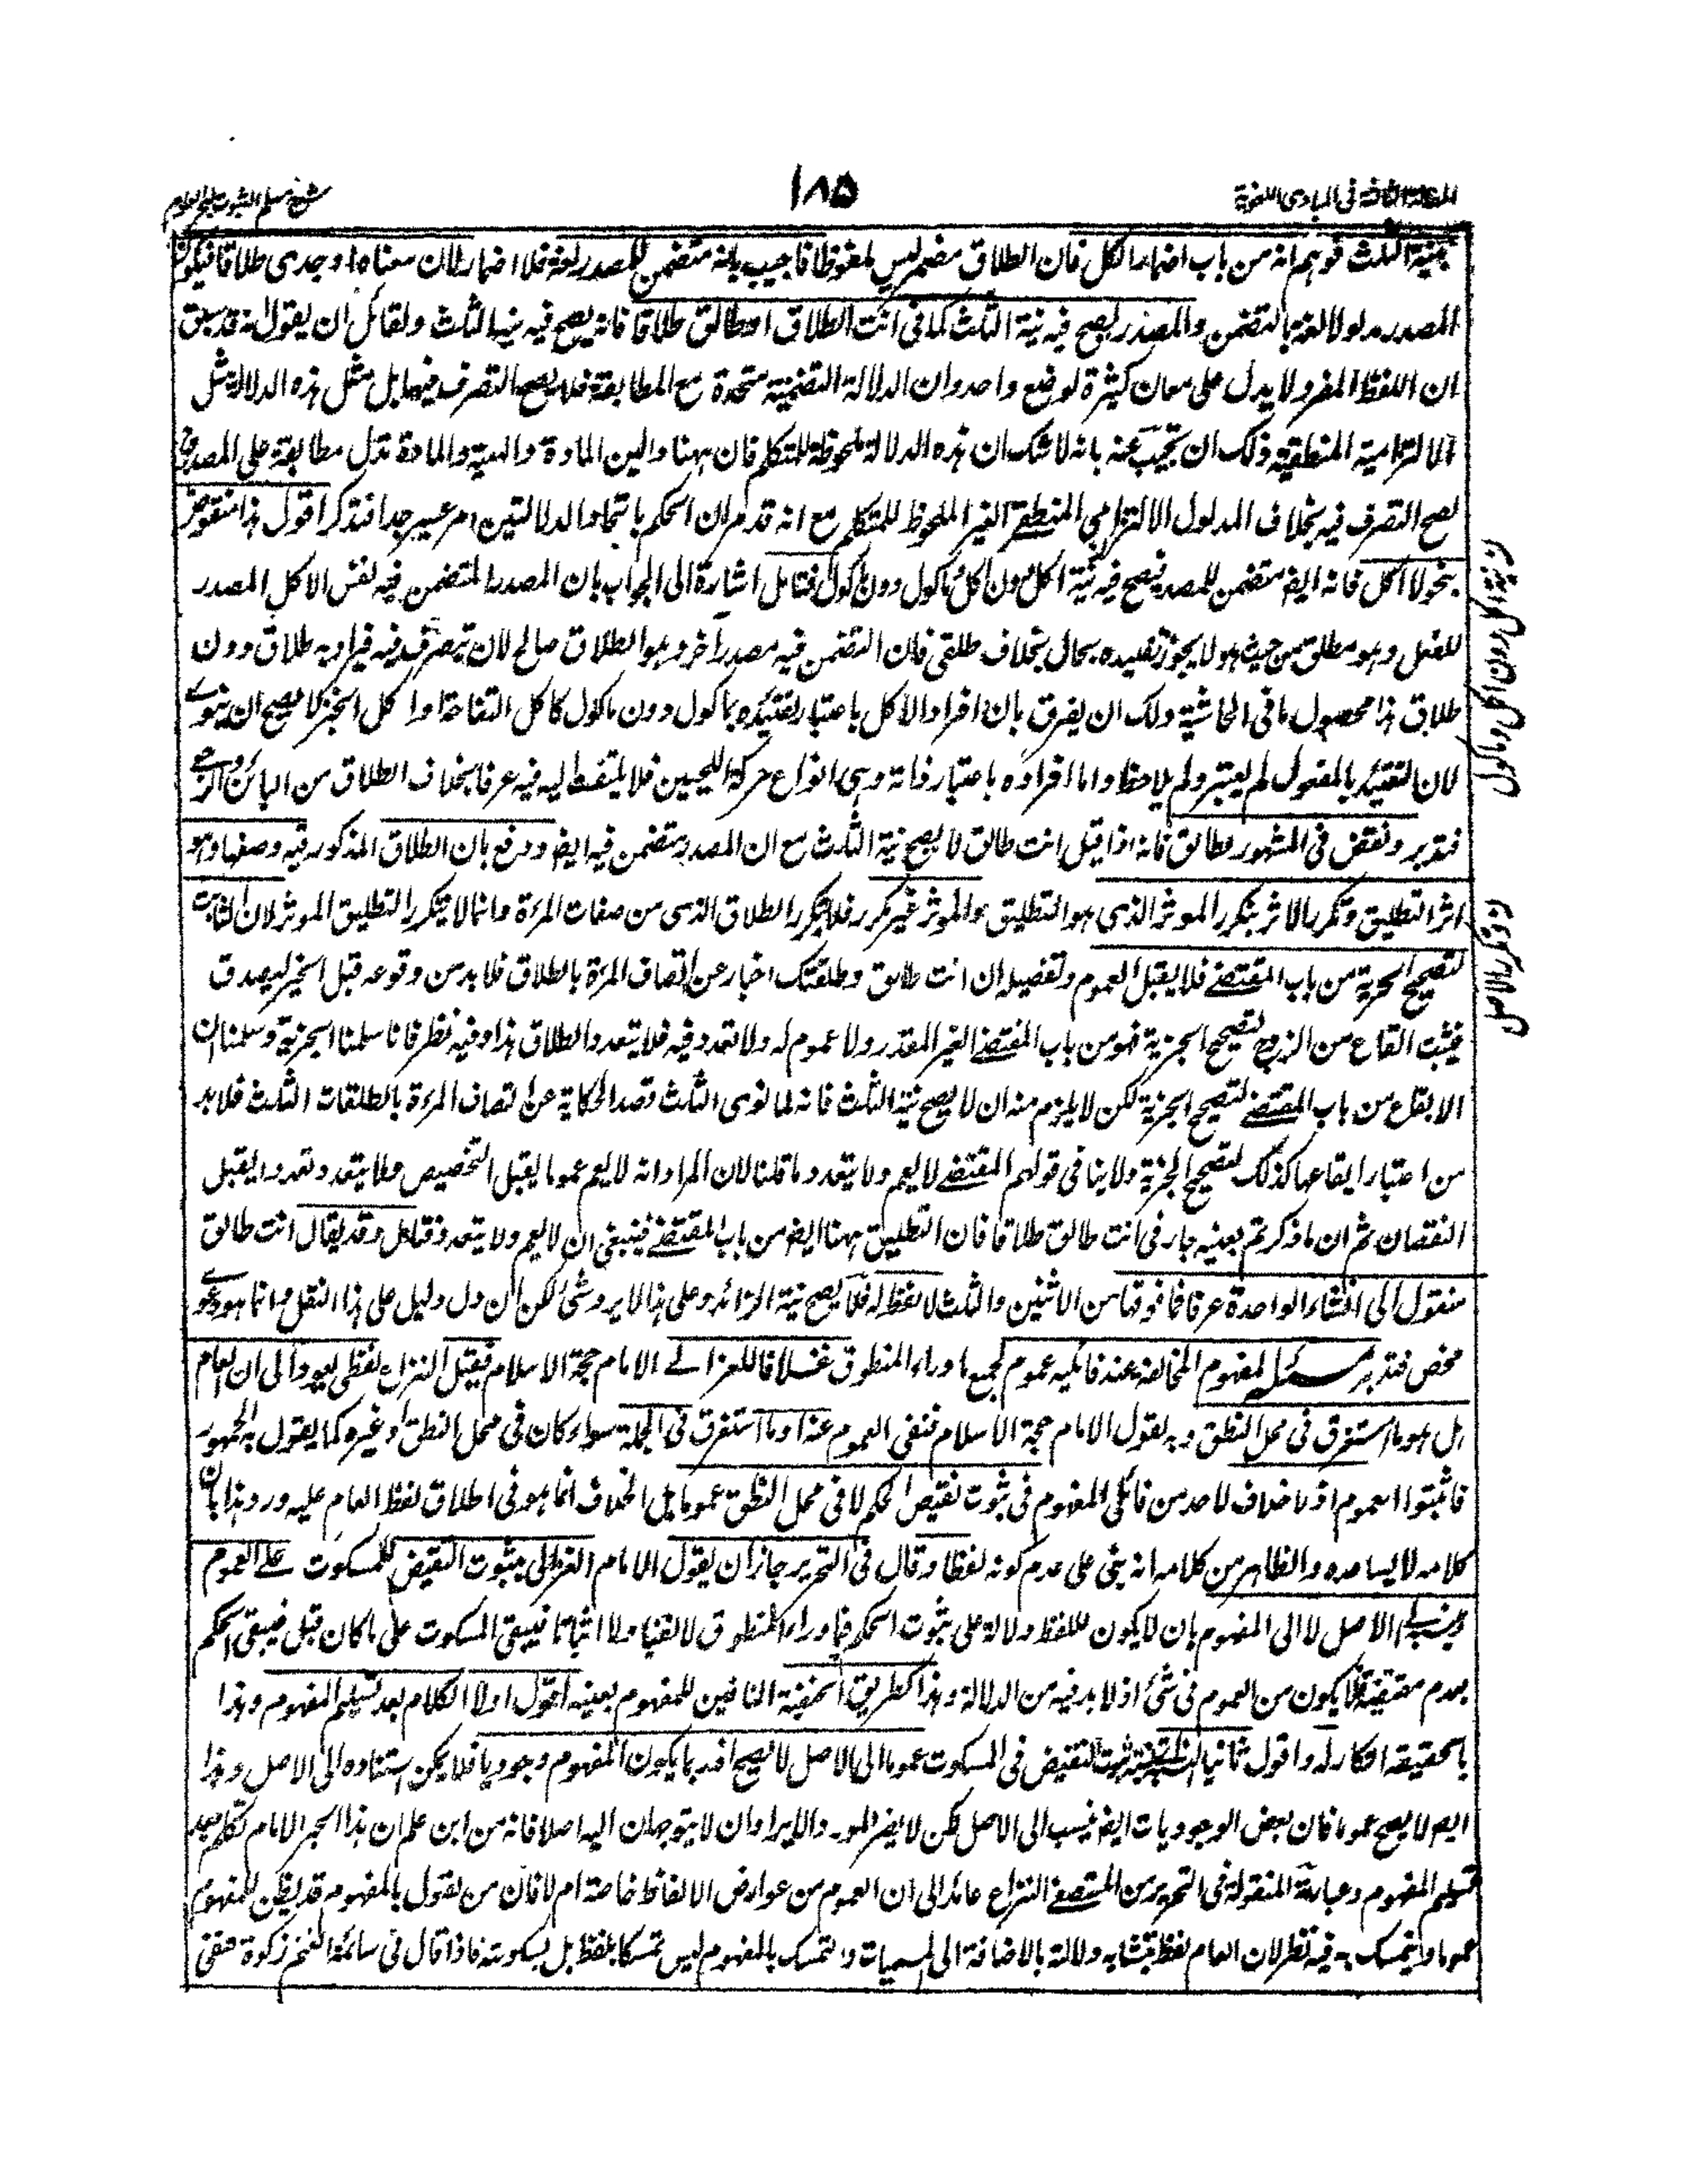 المقالة الثالثة فى المبادى اللغوية
١٨٥
شرح مسلم الثبوت لبحر العلوم
بنية الثلث فوهم انه من باب اضمار الكل فان الطلاق مضمر ليس ملفوظا فاجيب بانه متضمن للمصدر لغة فلا اضمار لان معناه اوجدى طلاقا فيكون
المصدر مدلولا لغة بالتضمن والمصدر يصح فيه نية الثلث كما فى انت الطلاق او طالق طلاقا فانه يصح فيه نية الثلث ولقائل ان يقول انه قد سبق
ان اللفظ المفرد لا يدل على معان كثيرة لوضع واحد وان الدلالة التضمنية متحدة مع المطابقة فلا يصح التصرف فيها بل مثل هذه الدلالة مثل
الالتزامية المنطقية ولك ان تجيب عنه بانه لا شك ان هذه الدلالة ملحوظة للمتكلم فان ههنا دالين المادة والهيئة والمادة تدل مطابقة على المصدر
يصح التصرف فيه بخلاف المدلول الالتزامى المنطقى الغير الملحوظ للمتكلم مع انه قد مر ان الحكم باتحاد الدلالتين امر عسير جدا فتذكر اقول هذا منقوض
بنحو لا آكل فانه ايضا متضمن للمصدر فيصح فيه نية اكل دون اكل وماكول دون ماكول فتامل اشارة الى الجواب بان المصدر المتضمن فيه نفس الاكل المصدر
للفعل وهو مطلق من حيث هو لا يجوز تقييده بحال بخلاف طلقى فان التضمن فيه مصدر آخر وهو الطلاق صالح لان يتصرف فيه فيراد به طلاق دون
طلاق هذا محصول ما فى الحاشية ولك ان يفرق بان افراد الاكل باعتبار تقييده بماكول دون ماكول كاكل التفاحة او اكل الخبز لا يصح ان ينوى
لان التقييد بالمفعول لم يعتبر ولم يلاحظ واما افراده باعتبار ذاته وهى انواع حركة اللحيين فلا يلتفت اليه فيه عرفا بخلاف الطلاق من البائن والرجعى
فتدبر ونقض فى المشهور بطالق فانه اذا قيل انت طالق لا يصح نية الثلث مع ان المصدر متضمن فيه ايضا ودفع بان الطلاق المذكور فيه وصفها وهو
اثر التطليق وتكرر الاثر بتكرر الموثر الذى هو التطليق والموثر غير مكرر فلا يتكرر الطلاق الذى من صفات المرءة وانما لا يتكرر التطليق الموثر لان الثابت
لتصحيح الخبرية من باب المقتضى فلا يقبل العموم وتفصيله ان انت طالق وطلقتك اخبار عن اتصاف المرءة بالطلاق فلا بد من وقوعه قبل الخبر ليصدق
فيثبت ايقاع من الزوج لتصحيح الخبرية فهو من باب المقتضى الغير المقدر ولا عموم له ولا تعدد فيه فلا يتعدد الطلاق هذا وفيه نظر فانا سلمنا الخبرية وسلمنا ان
الايقاع من باب المقتضى لتصحيح الخبرية لكن لا يلزم منه ان لا يصح نية الثلث فانه لما نوى الثلث قصد الحكاية عن اتصاف المرءة بالطلقات الثلث فلا بد
من اعتبار ايقاعها كذلك لتصحيح الخبرية ولا ينافى قولهم المقتضى لا يعم ولا يتعدد ما قلنا لان المراد انه لا يعم عموما يقبل التخصيص ولا يتعدد تعددا يقبل
النقصان ثم ان ما ذكرتم بعينه جار فى انت طالق طلاقا فان التطليق ههنا ايضا من باب المقتضى فينبغى ان لا يعم ولا يتعدد فتامل وقد يقال انت طالق
منقول الى انشاء الواحدة عرفا فما فوقها من الاثنين والثلث لا لفظ له فلا يصح نية الزائد وعلى هذا لا يرد شئ لكن ان دل دليل على هذا النقل وانما هو دعوى
محض فتدبر مسئلة لمفهوم المخالفة عند قائليه عموم لجميع ما وراء المنطوق خلافا للغزالى الامام حجة الاسلام فقيل النزاع لفظى يعود الى ان العام
هل هو ما استغرق فى محل النطق وبه يقول الامام حجة الاسلام فنفى العموم عنه او ما استغرق فى الجملة سواء كان فى محل النطق او غيره كما يقول به الجمهور
فاثبتوا العموم اذ لا خلاف لاحد من قائلى المفهوم فى ثبوت نقيض الحكم لا فى محل النطق عموما بل الخلاف انما هو فى اطلاق لفظ العام عليه ورد هذا بان
كلامه لا يساعده والظاهر من كلامه انه بنى على عدم كونه لفظا وقال فى التحرير جاز ان يقول الامام الغزالى بثبوت النقيض للمسكوت على العموم
وينسبه الى الاصل لا الى المفهوم بان لا يكون للفظ دلالة على ثبوت الحكم فيما وراء المنطوق لا نفيا ولا اثباتا فيبقى المسكوت على ما كان قبل فيبقى الحكم
بعدم مقتضيه فلا يكون من العموم فى شئ اذ لا بد فيه من الدلالة وهذا كطريق الحنفية النافين للمفهوم بعينه اقول اولا الكلام بعد تسليم المفهوم وهذا
بالحقيقة انكار له واقول ثانيا النسبة ثبوت النقيض فى المسكوت عموما الى الاصل لا يصح اذ ربما يكون المفهوم وجوديا فلا يمكن استناده الى الاصل وهذا
ايضا لا يصح عموما فان بعض الوجوديات ايضا ينسب الى الاصل لكن لا يضر المورد والايراد ان لا يتوجهان اليه اصلا فانه من اين علم ان هذا الحبر الامام تكلم بعد
تسليم المفهوم وعبارته المنقولة فى التحرير من المستصفى النزاع عائد الى ان العموم من عوارض الالفاظ خاصة ام لا فان من يقول بالمفهوم قد يظن للمفهوم
عموما ويتمسك به فيه نظر لان العام لفظ يتشابه دلالته بالاضافة الى المسميات والتمسك بالمفهوم ليس تمسكا بلفظ بل بسكوته فاذا قال فى سائمة الغنم زكوة فنفى